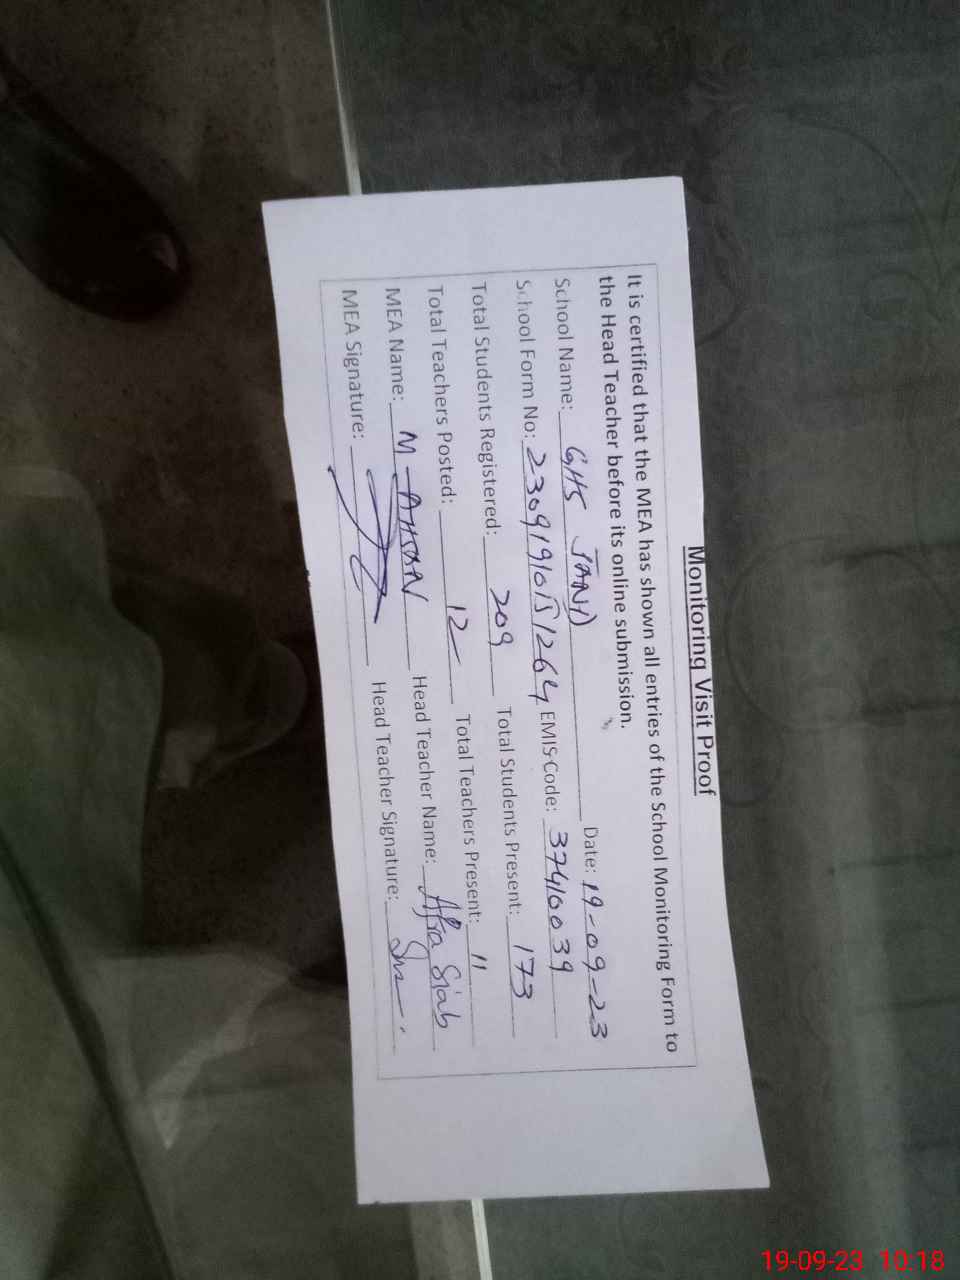 Monitoring Visit Proof
It is certified that the MEA has shown all entries of the School Monitoring Form to
the Head Teacher before its online submission.
School Name: GHS JAND Date: 19-09-23
School Form No: 23091910151264 EMIS Code: 37410039
Total Students Registered: 209 Total Students Present: 173
Total Teachers Posted: 12 Total Teachers Present: 11
MEA Name: M AHSAN Head Teacher Name: Afra Siab
MEA Signature: Head Teacher Signature:
19-09-23 10:18